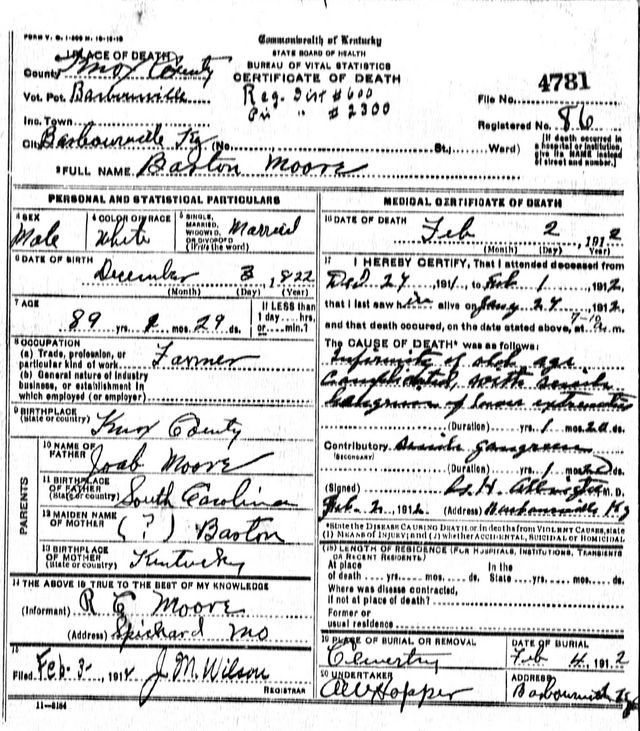 FORM V. S. 1-500 M. 10-10-10
Commonwealth of Kentucky
STATE BOARD OF HEALTH
BUREAU OF VITAL STATISTICS
CERTIFICATE OF DEATH
1 PLACE OF DEATH
County Knox County
Vot. Pct. Barbourville
Inc. Town
City Barbourville Ky (No. St.; Ward)
Reg. Dist # 600
Pri " # 2300
4781
File No.
Registered No. 86
[If death occurred in a hospital or institution, give its NAME instead of street and number.]
2 FULL NAME Baxton Moore
PERSONAL AND STATISTICAL PARTICULARS
3 SEX
Male
4 COLOR OR RACE
White
5 SINGLE, MARRIED, WIDOWED, OR DIVORCED (Write the word)
Married
6 DATE OF BIRTH
December 3 1822
(Month) (Day) (Year)
7 AGE
89 yrs. 1 mos. 29 ds.
If LESS than 1 day....hrs. or....min.?
8 OCCUPATION
(a) Trade, profession, or particular kind of work Farmer
(b) General nature of industry business, or establishment in which employed (or employer)
9 BIRTHPLACE
(State or country) Knox County
PARENTS
10 NAME OF FATHER Joab Moore
11 BIRTHPLACE OF FATHER (State or country) South Carolina
12 MAIDEN NAME OF MOTHER (?) Baxton
13 BIRTHPLACE OF MOTHER (State or country) Kentucky
14 THE ABOVE IS TRUE TO THE BEST OF MY KNOWLEDGE
(Informant) R C Moore
(Address) Spickard Mo
15
Filed Feb-3- 1912 J. M. Wilson
REGISTRAR
11-3184
MEDICAL CERTIFICATE OF DEATH
16 DATE OF DEATH
Feb 2 1912
(Month) (Day) Year)
17 I HEREBY CERTIFY, That I attended deceased from
Dec 27, 1911 to Feb 1, 1912,
that I last saw him alive on Jany 27, 1912,
and that death occured, on the date stated above, at 7-10 a m.
The CAUSE OF DEATH* was as follows:
Infirmity of old age
Complicated, with senile
Gangrene of lower extremities
(Duration) yrs. 1 mos. ds.
Contributory Senile gangrene
(SECONDARY)
(Duration) yrs. 1 mos. ds.
(Signed) M.D.
Feb. 2, 1912. (Address) Barbourville Ky
*State the DISEASE CAUSING DEATH, or in deaths from VIOLENT CAUSES, state (1) MEANS OF INJURY; and (2) whether ACCIDENTAL, SUICIDAL or HOMICIDAL
(18) LENGTH OF RESIDENCE (FOR HOSPITALS, INSTITUTIONS, TRANSIENTS OR RECENT RESIDENTS)
At place of death .... yrs. .... mos. .... ds. In the State .... yrs. .... mos. .... ds.
Where was disease contracted, if not at place of death?
Former or usual residence
19 PLACE OF BURIAL OR REMOVAL
DATE OF BURIAL
Feb 4, 1912
20 UNDERTAKER
Hopper
ADDRESS
Barbourville Ky